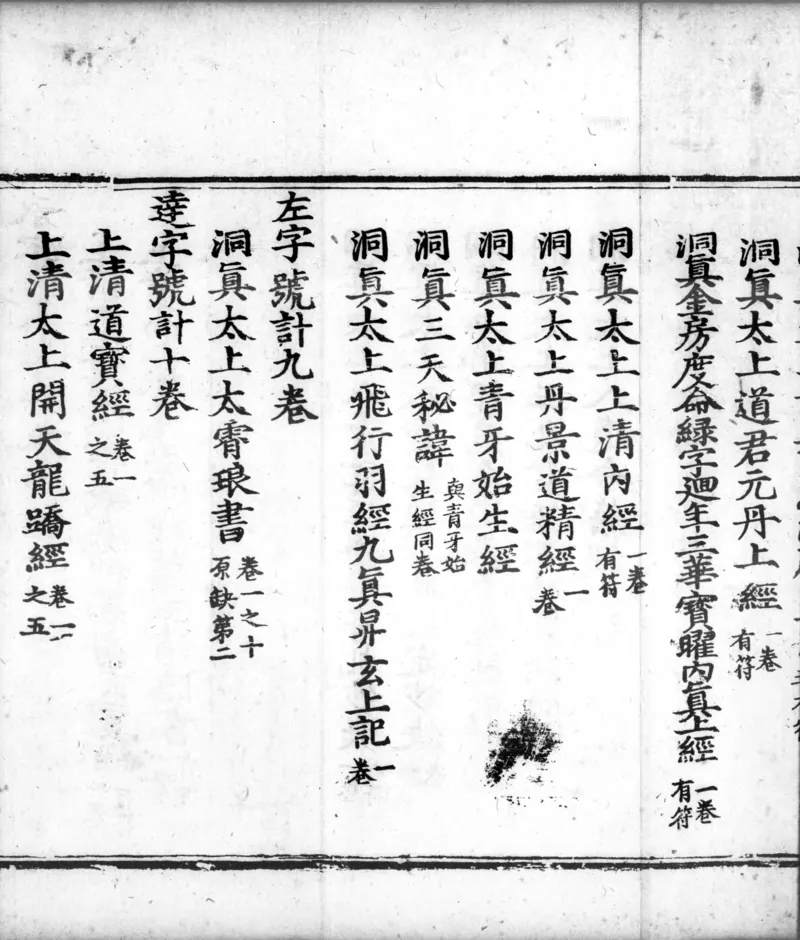 洞眞太上道君元丹上經一卷有符
洞眞金房度命綠字迴年三華寶曜內眞上經一卷有符
洞眞太上上清內經一卷有符
洞眞太上丹景道精經一卷
洞眞太上青牙始生經
洞眞三天秘諱與青牙始生經同卷
洞眞太上飛行羽經九眞昇玄上記一卷
左字號計九卷
洞眞太上太霄琅書卷一之十原缺第二
達字號計十卷
上清道寶經卷一之五
上清太上開天龍蹻經卷一之五